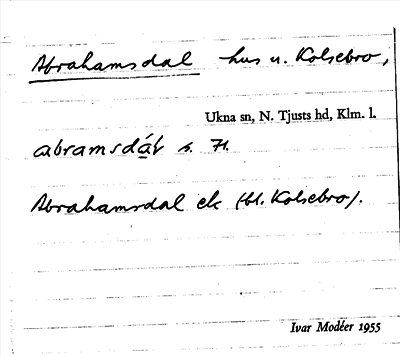 Abrahamsdal hus u. Kolsebro,
Ukna sn, N. Tjusts hd, Klm. l.
abramsdáḷ s. 71.
Abrahamsdal ek (bl. Kolsebro).
Ivar Modéer 1955